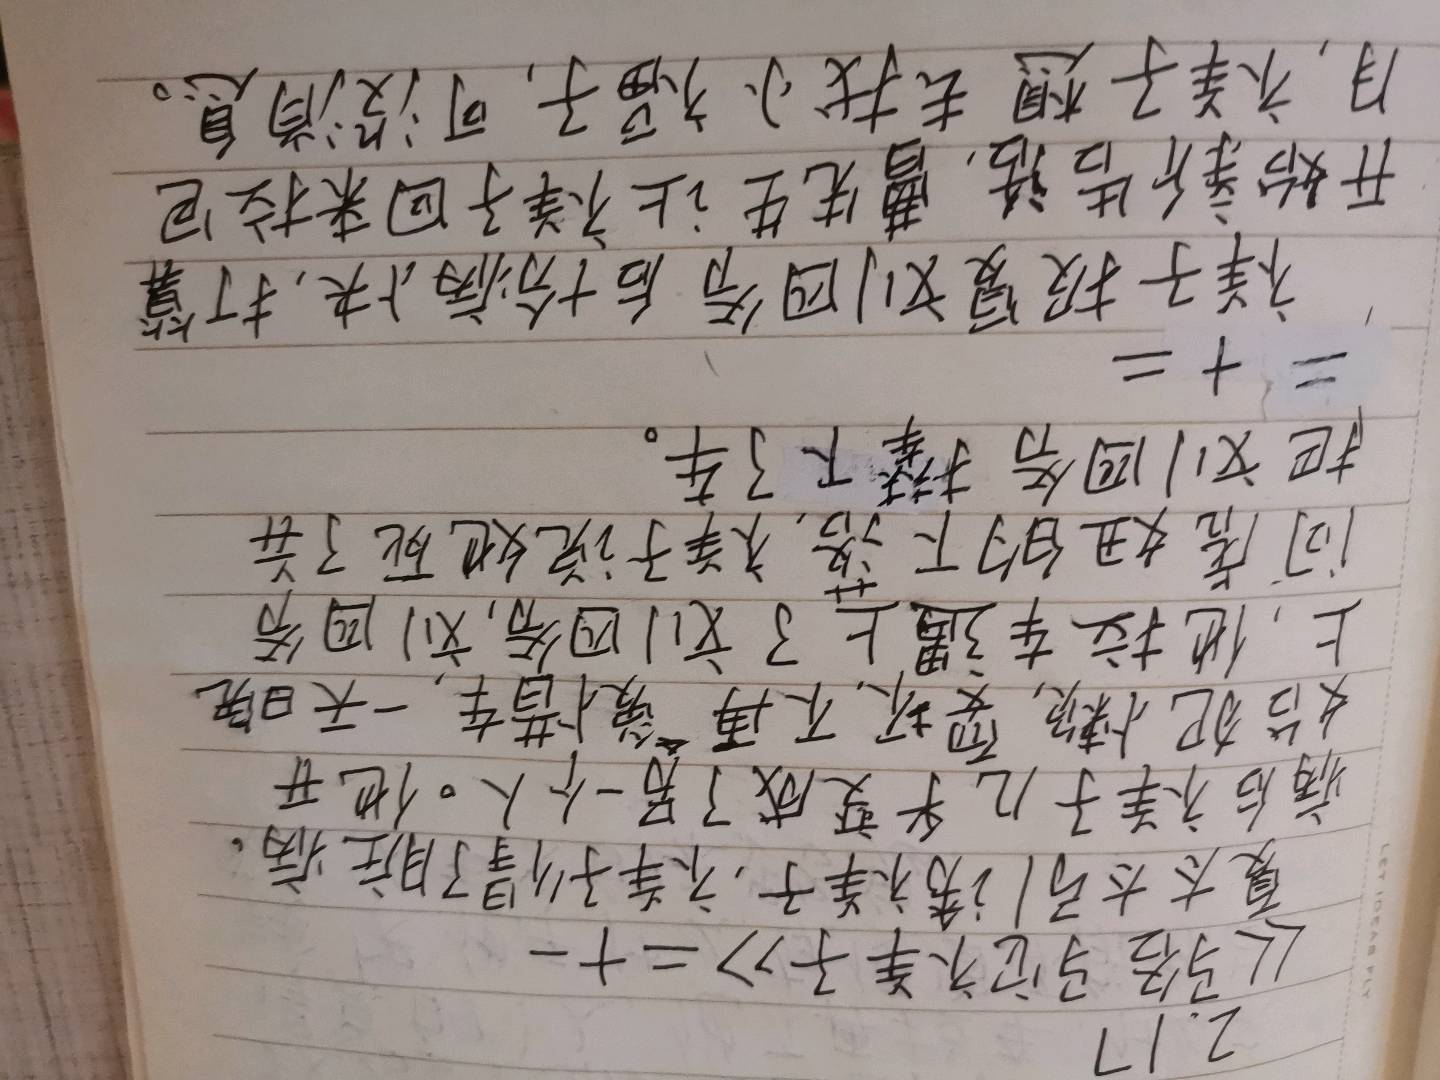 2.17
《骆驼祥子》二十一
夏太太引诱祥子,祥子得了脏病。
病后祥子几乎变成了另一个人。他开
始犯懒,耍坏,不再爱惜车,一天日晚
上,他拉车遇上了刘四爷,刘四爷
问虎妞的下落,祥子说她死了并
把刘四爷撵下了车。
二十二
祥子报复刘四爷后十分痛快,打算
开始新生活,曹先生让祥子回来拉包
月,祥子想去找小福子,可没消息。
LET IDEAS FLY